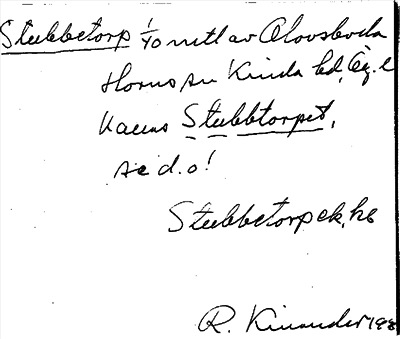 Stubbetorp 1/40 mtl av Olovsboda
Horns sn Kinda hd, Ög. l
Kallas Stubbtorpet,
se d.o!
Stubbetorp ek, hs
R. Kinander 198